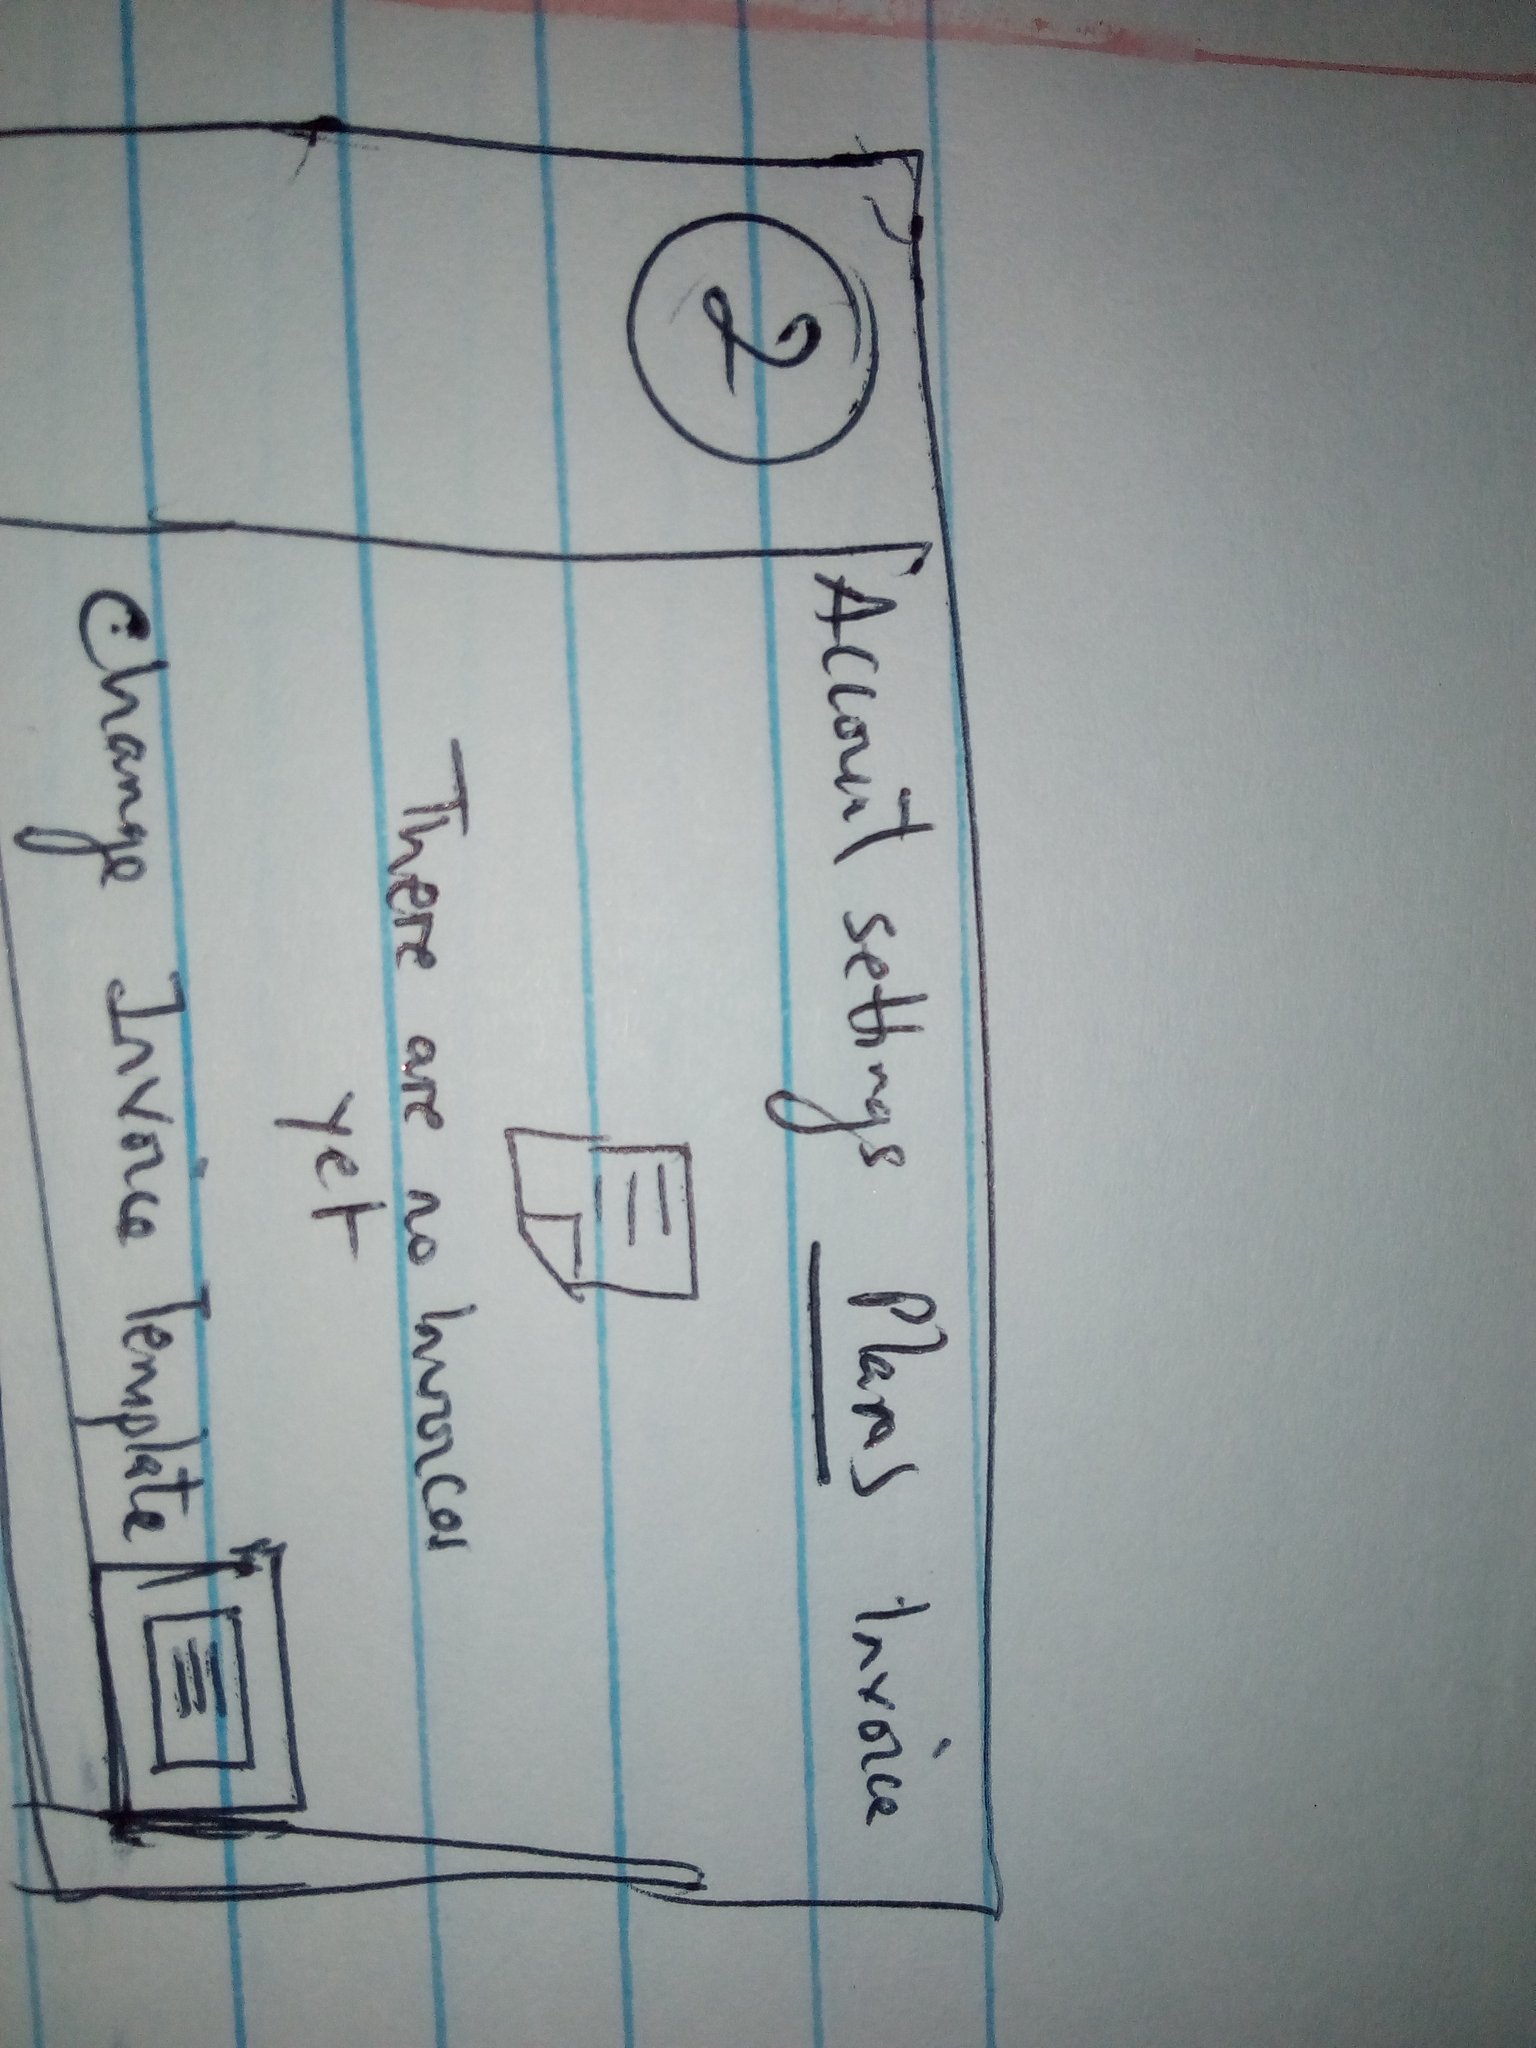 2
Account settings Plans Invoice
There are no Invoices
yet
Change Invoice Template